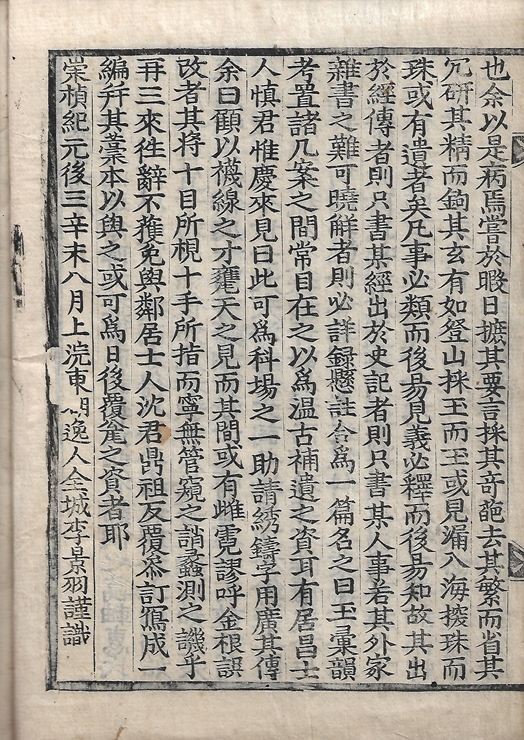 也余以是病焉嘗於暇日摭其要言採其奇葩去其繁而省其
冗研其精而鉤其玄有如登山採玉而玉或見漏入海探珠而
珠或有遺者矣凡事必類而後易見義必釋而後易知故其出
於經傳者則只書其經出於史記者則只書某人事若其外家
雜書之難可曉解者則必詳録懸註合爲一篇名之曰玉彙韻
考置諸几案之間常目在之以爲温古補遺之資耳有居昌士
人愼君惟慶來見曰此可爲科場之一助請綉鑄字用廣其傳
余曰顧以襪線之才甕天之見而其間或有雌霓謬呼金根誤
改者其将十目所視十手所指而寧無管窺之誚蠡測之譏乎
再三來徃辭不獲免與鄰居士人沈君鼎祖反覆叅訂寫成一
編幷其藁本以與之或可爲日後覆瓿之資者耶
崇楨紀元後三辛未八月上浣東湖逸人全城李景羽謹識